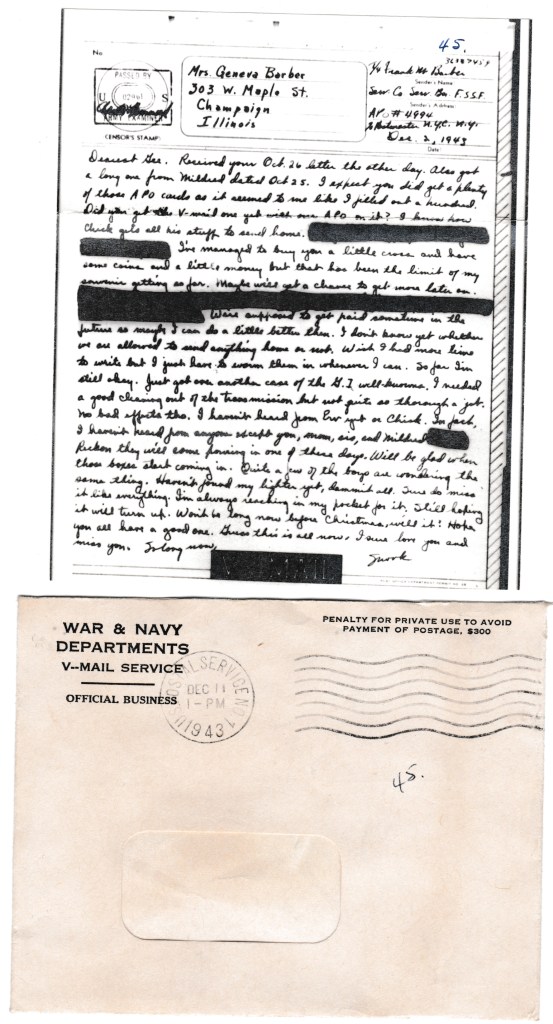 45.
No.
PASSED BY
U S
ARMY EXAMINER
CENSOR'S STAMP
Mrs. Geneva Barber
303 W. Maple St.
Champaign
Illinois
T/4 Frank M Barber
Sender's Name
Serv Co Serv Bn. F.S.S.F.
Sender's Address
APO # 4994
% Postmaster N.Y.C. N.Y.
Dec. 2, 1943
Date
Dearest Gee. Received your Oct. 26 letter the other day. Also got
a long one from Mildred dated Oct 25. I expect you did get a plenty
of those APO cards as it seemed to me like I filled out a hundred.
Did you get the V-mail one yet with our APO on it? I know how
Chick gets all his stuff to send home.
I've managed to buy you a little cross and have
some coins and a little money but that has been the limit of my
souvenir getting so far. Maybe will get a chance to get more later on.
We're supposed to get paid sometime in the
future so maybe I can do a little better then. I don't know yet whether
we are allowed to send anything home or not. Wish I had more time
to write but I just have to worm them in whenever I can. So far I'm
still okay. Just got over another case of the G.I. well-knowns. I needed
a good cleaning out of the transmission but not quite so thorough a job.
No bad affects tho. I haven't heard from Erv yet or Chick. In fact,
I haven't heard from anyone except you, mom, sis, and Mildred
Reckon they will come pouring in one of these days. Will be glad when
those boxes start coming in. Quite a few of the boys are wondering the
same thing. Haven't found my lighter yet, dammit all. Sure do miss
it like everything. I'm always reaching in my pocket for it. Still hoping
it will turn up. Won't be long now before Christmas, will it? Hope
you all have a good one. Guess this is all now. I sure love you and
miss you. So long now,
Snook
WAR & NAVY
DEPARTMENTS
V--MAIL SERVICE
OFFICIAL BUSINESS
PENALTY FOR PRIVATE USE TO AVOID
PAYMENT OF POSTAGE, $300
POSTAL SERVICE NO. 1
DEC 11
1-PM
1943
45.